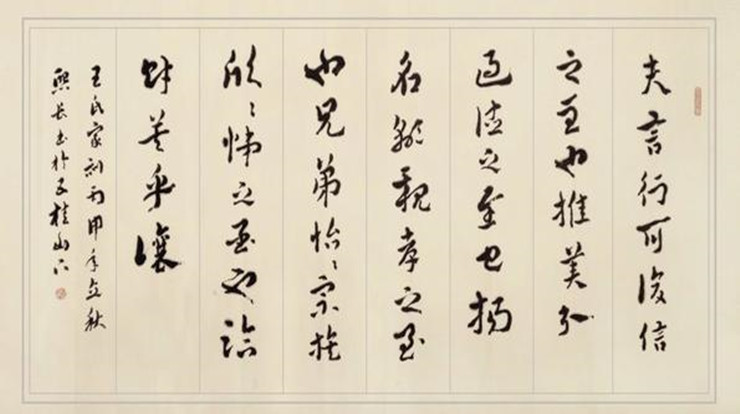 夫言行可復信
之至也推美引
過德之至也揚
名顯親孝之至
也兄弟怡〻宗族
欣〻悌之至也臨
財莫乎讓
王氏家訓丙申年立秋
熙長書於五桂山下